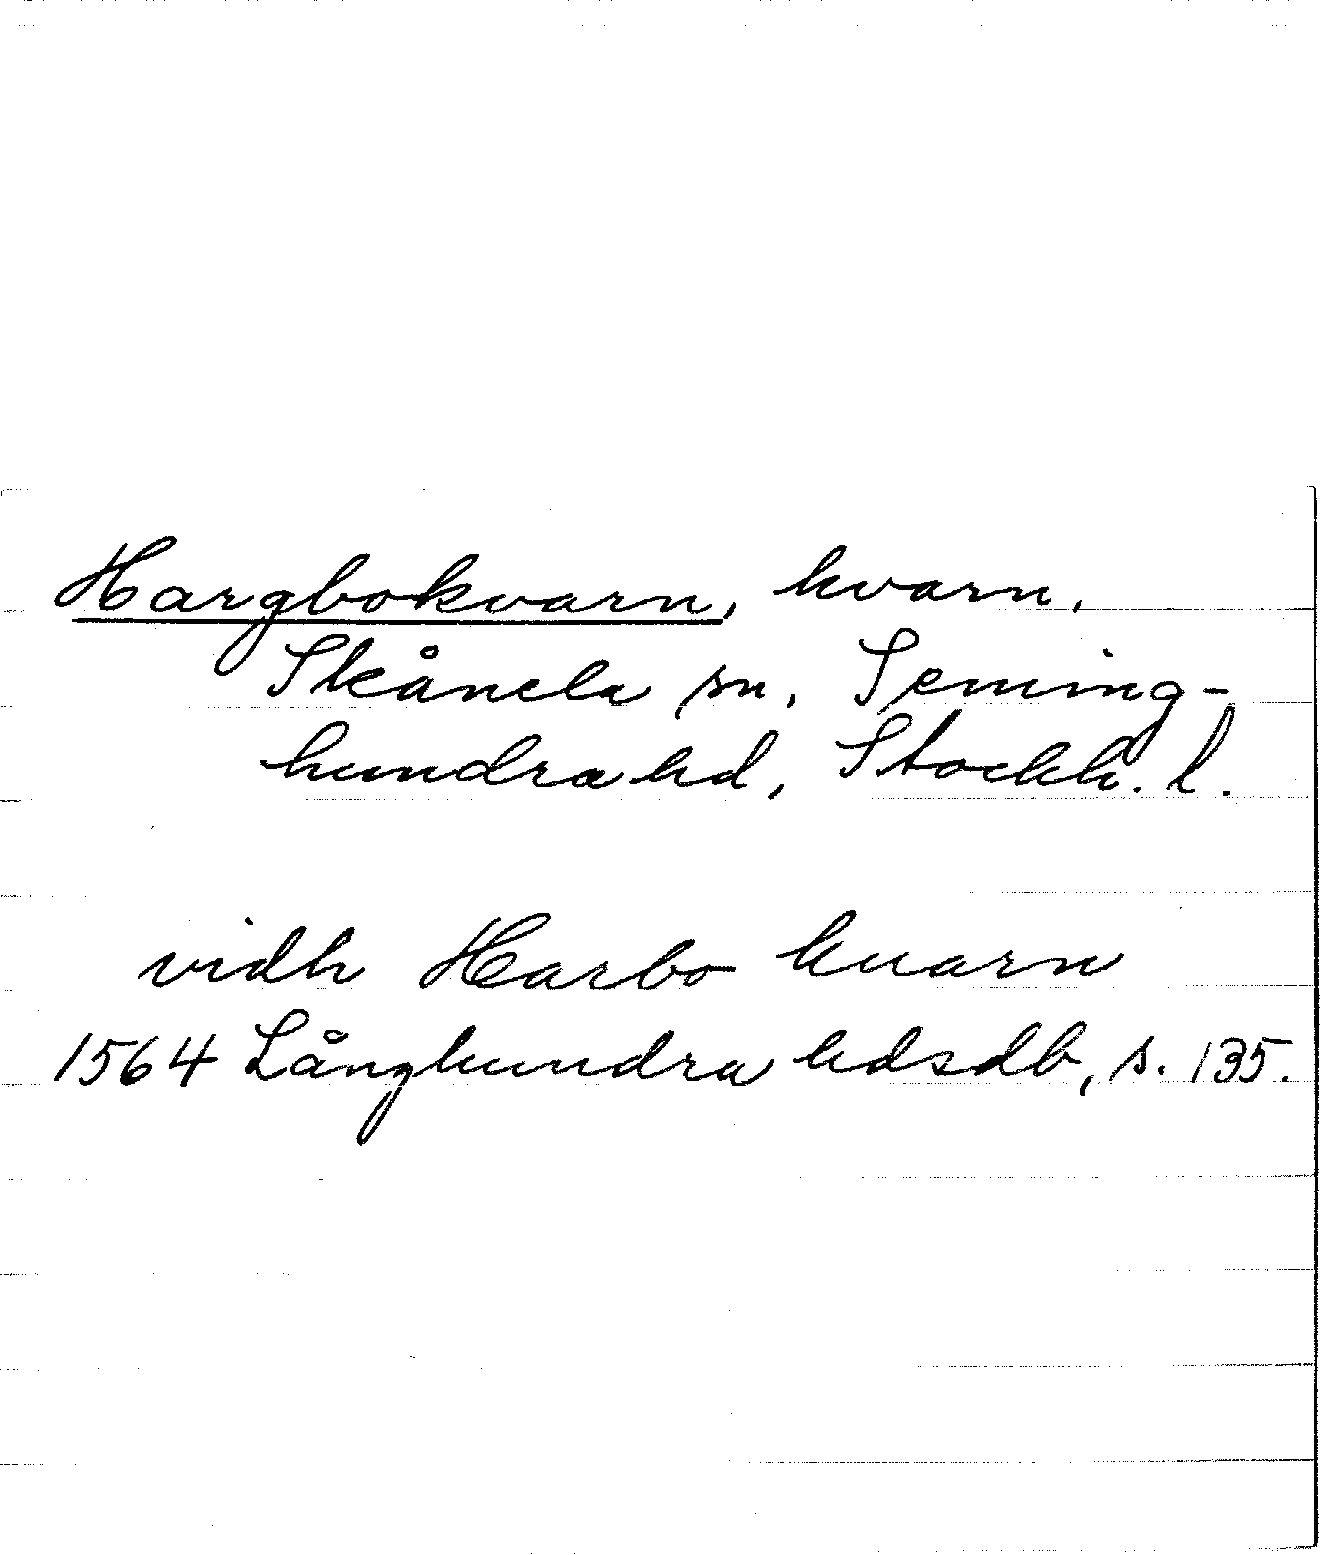 Hargbokvarn, kvarn,
Skånela sn, Seming-
hundra hd, Stockh. l.
vidh Harbo kuarn
1564 Långhundra hdsdb, s. 135.